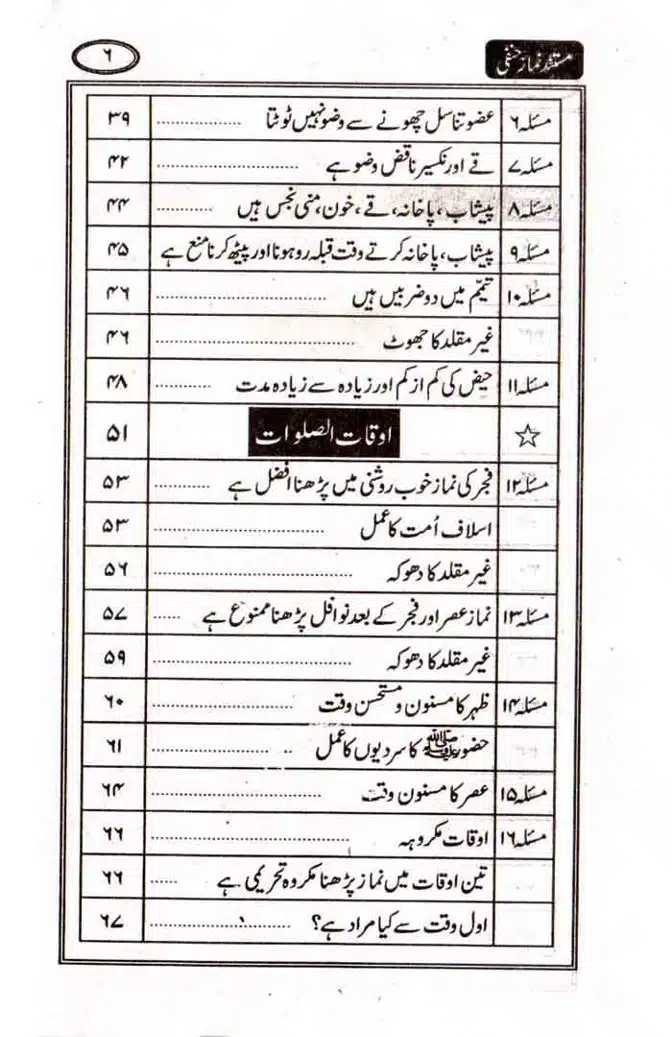 مستند نماز حنفی ۶
مسئلہ ۶ عضو تناسل چھونے سے وضو نہیں ٹوٹتا ................ ۳۹
مسئلہ ۷ قے اور نکسیر ناقض وضو ہے ................ ۴۲
مسئلہ ۸ پیشاب، پاخانہ، قے، خون، منی نجس ہیں ........... ۴۴
مسئلہ ۹ پیشاب، پاخانہ کرتے وقت قبلہ رو ہونا اور پیٹھ کرنا منع ہے ۴۵
مسئلہ ۱۰ تیمّم میں دو ضربیں ہیں ................ ۴۶
غیر مقلد کا جھوٹ ................ ۴۶
مسئلہ ۱۱ حیض کی کم از کم اور زیادہ سے زیادہ مدت ........... ۴۸
☆ اوقات الصلوات ۵۱
مسئلہ ۱۲ فجر کی نماز خوب روشنی میں پڑھنا افضل ہے ........... ۵۳
اسلاف اُمت کا عمل ................ ۵۳
غیر مقلد کا دھوکہ ................ ۵۶
مسئلہ ۱۳ نماز عصر اور فجر کے بعد نوافل پڑھنا ممنوع ہے ..... ۵۷
غیر مقلد کا دھوکہ ................ ۵۹
مسئلہ ۱۴ ظہر کا مسنون و مستحسن وقت ................ ۶۰
حضور ﷺ کا سردیوں کا عمل ................ ۶۱
مسئلہ ۱۵ عصر کا مسنون وقت ................ ۶۴
مسئلہ ۱۶ اوقات مکروہہ ................ ۶۶
تین اوقات میں نماز پڑھنا مکروہ تحریمی ہے ...... ۶۶
اول وقت سے کیا مراد ہے؟ ................ ۶۷